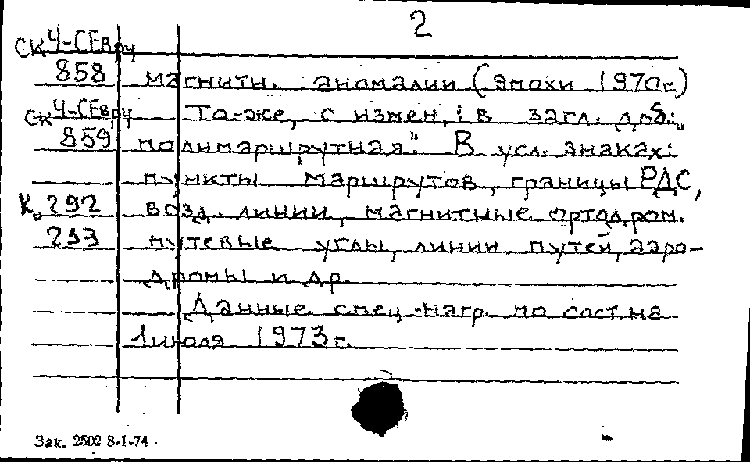 2
СК Ч-СЕвру
858 магнитн. аномалии (эпохи 1970г.)
СК Ч-СЕвру То-же, с измен.: в загл. доб.:
859 "полимаршрутная". В усл. знаках:
пункты маршрутов, границы РДС,
К. 292 возд. линии, магнитные ортодром.
293 путевые углы, линии путей, аэро-
дромы и др.
Данные спец. нагр. по сост. на
1 июля 1973 г.
Зак. 2502 8-1-74